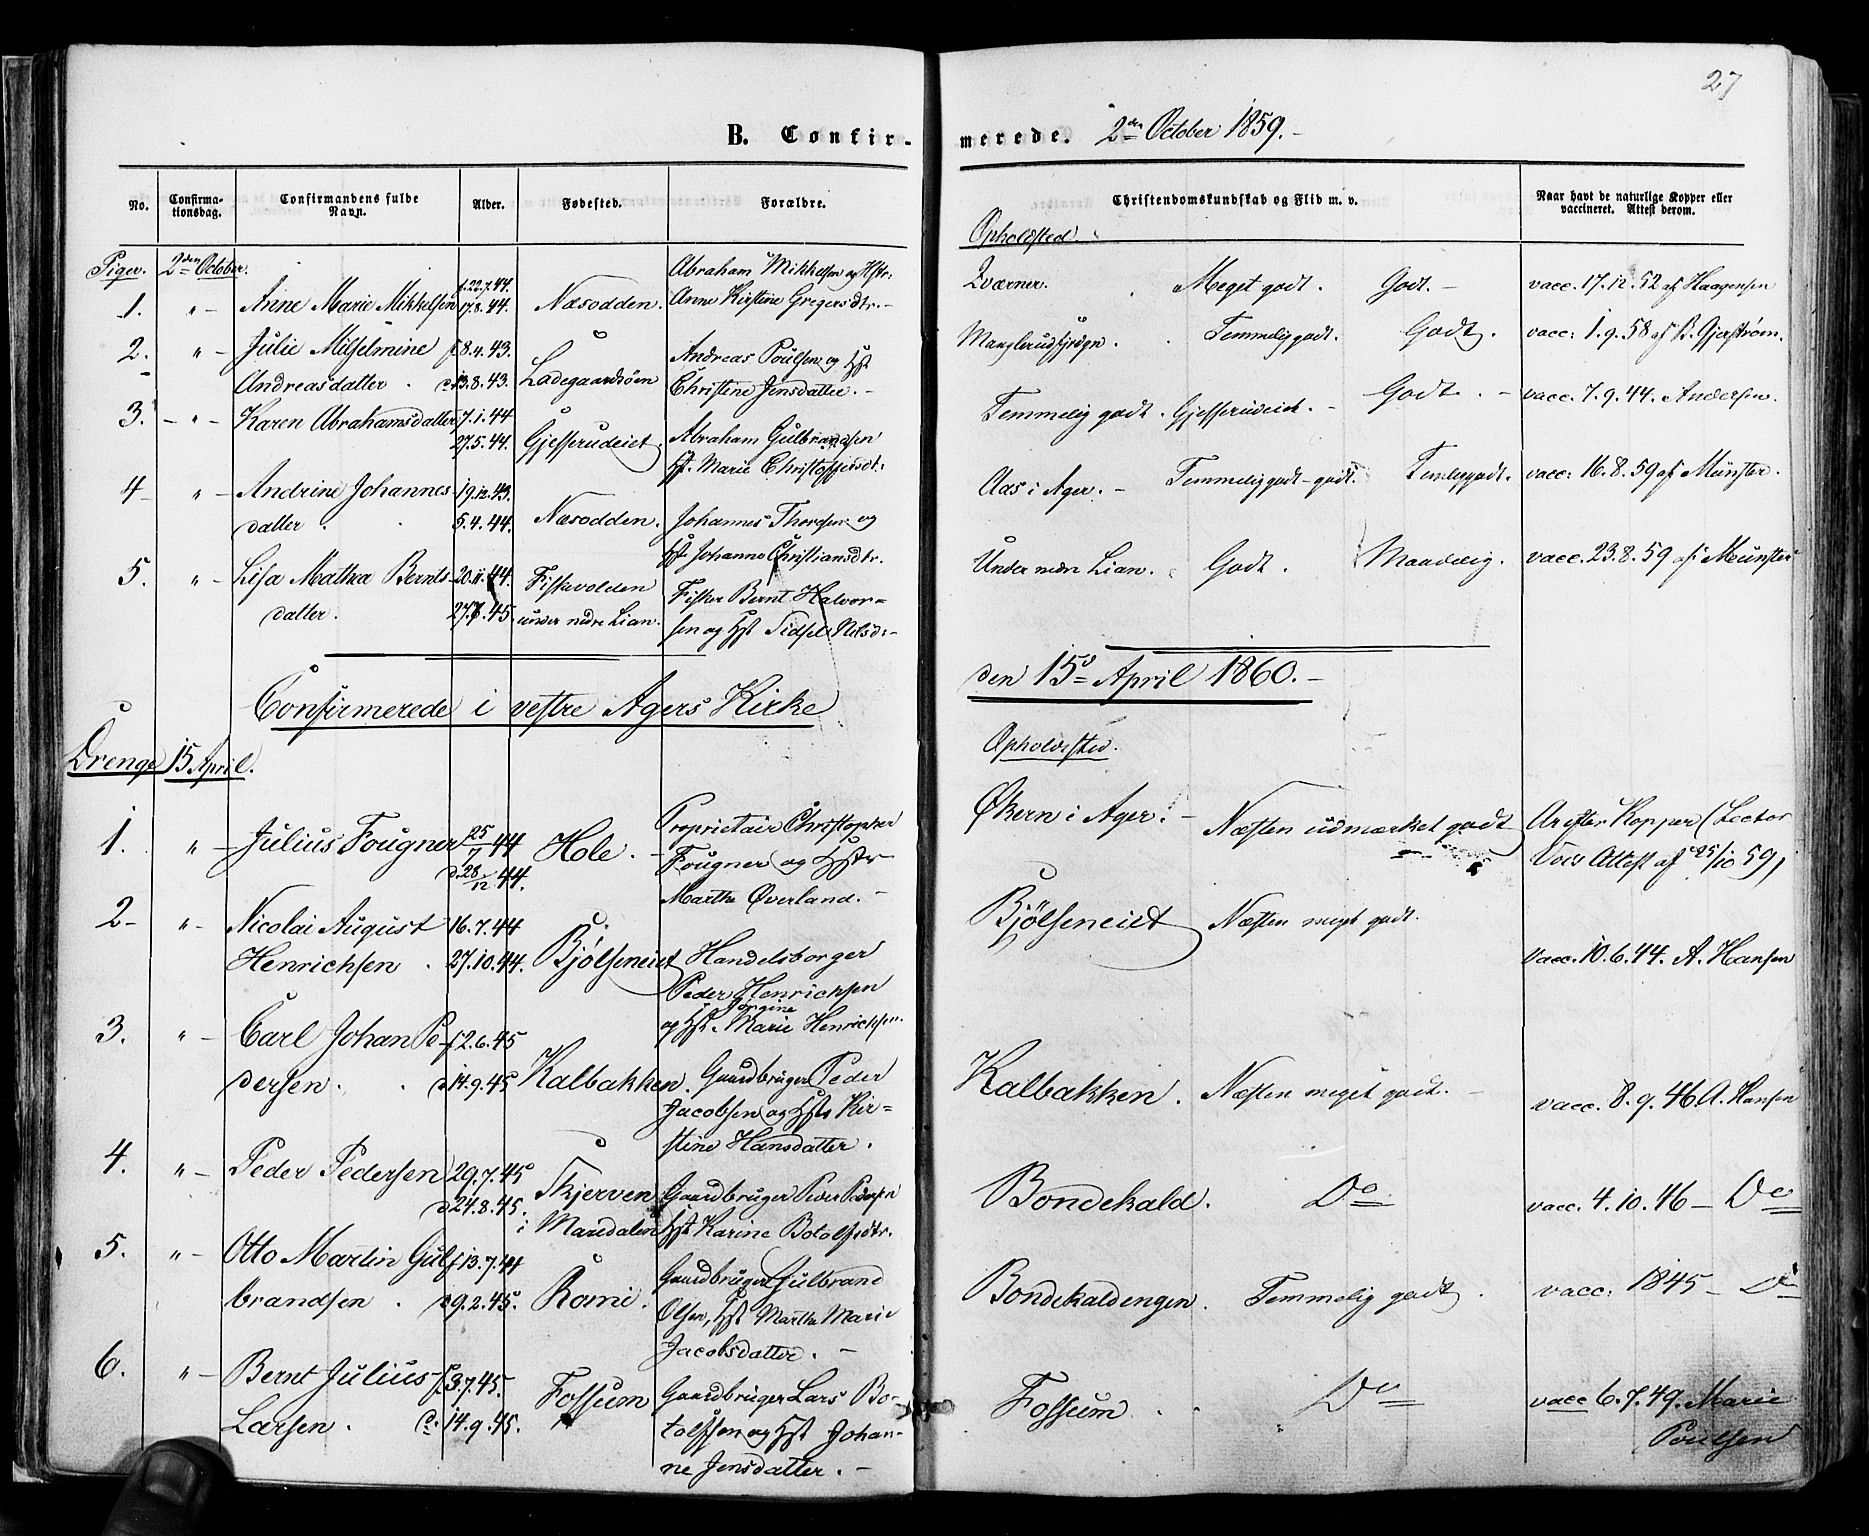 27
B. Confir-
merede. 2den October 1859.-
No.
Confirma-
tionsdag.
Confirmandens fulde
Navn.
Alder.
Fødested.
Forældre.
Christendomskundskab og Flid m. v.
Naar havt de naturlige Kopper eller
vaccineret. Attest derom.
Opholdsted.
Piger. 2den October.
1. " - Anne Marie Mikkelsen f. 22.7.44. 17.8.44. Næsodden. Abraham Mikkelsen og Hstr:
Anne Kirstine Gregersdtr.-
Meget godt. Godt.- vacc. 17.12.52 af Haagensen
2. " - Julie Milselmine f 8.4.43. Ladegaardsøen Andreas Poulsen og Hst
Andreasdatter. d 13.8.43. Christine Jensdatter.-
Temmelig godt. Godt. vacc: 1.9.58 af
3. - " - Karen Abrahamsdatter 7.1.44 Gjesserudeiet Abraham Gulbrandsen
27.5.44. Hst. Marie Christophersdt:
Temmelig godt. Gjesserudeiet.- Godt.- vacc. 7.9.44. Andersen.
4- " - Andrine Johannes- 19.12.43. Næsodden. Johannes Thoresen og
datter. 5.4.44. Hst Johanne Christiansdtr.
Aas i Ager.- Temmelig godt-godt. vacc: 16.8.59 af Münster.
5. " - Lisa Mathea Bernts- 20.11.44. Fiskevolden Fisker Bernt Halvor=
datter. 45. under nedre Lian. sen og Hst Sidsel Nilsd:-
Under nedre Lian. Godt. Maadelig. vacc. 23.8.59 af Meünster
Confirmerede i vestre Agers Kirke
den 15de April 1860.-
Drenge 15 April.
Opholdssted.
1. " - Julius Fougner 25/7 44 Hole.- Proprietair Christopher
d. 28/12 44. Fougner og Hstr
Marthe Øverland.-
Økern i Ager.- Næsten udmærket godt Ar efter Kopper (Lector
Voss Attest af 25/10 59)
2- " - Nicolai August 16.7.44 Bjølseneiet Handelsborger
Henrichsen. 27.10.44. Peder Henrichsen
Jørgine
og Hst. Marie Henrichsen.
Bjølseneiet Næsten meget godt. Vacc. 10.6.44. A. Hansen
3. " - Carl Johan Pe- f 2.6.45 Kalbakken. Gaardbruger Peder
dersen. d 14.9.45 Jacobsen og Hst Kir=
stine Hansdatter.
Kalbakken. Næsten meget godt.- vacc. 8.9.46 A. Hansen
4. " - Peder Pedersen 29.7.45 Skjerven Gaardbruger Peder Pedersen
d 24.8.45. i Maridalen Hst Karine Botolfsdtr.
Bondekald. Do vacc. 4.10.46 - Do
5. " - Otto Martin Gul- f 13.7.44 Gaardbruger Gulbrand
brandsen. d 9.2.45. Olsen, Hst Marthe Marie
Jacobsdatter.-
Bondekaldengen. Temmelig godt. vacc. 1845 - Do
6. " - Bernt Julius f. 3.7.45. Fossum Gaardbruger Lars Bo-
Larsen. d. 14.9.45. tolfssen og Hst Johan-
ne Jensdatter.-
Fossum.. Do vacc 6.7.49. Marie
Poulsen